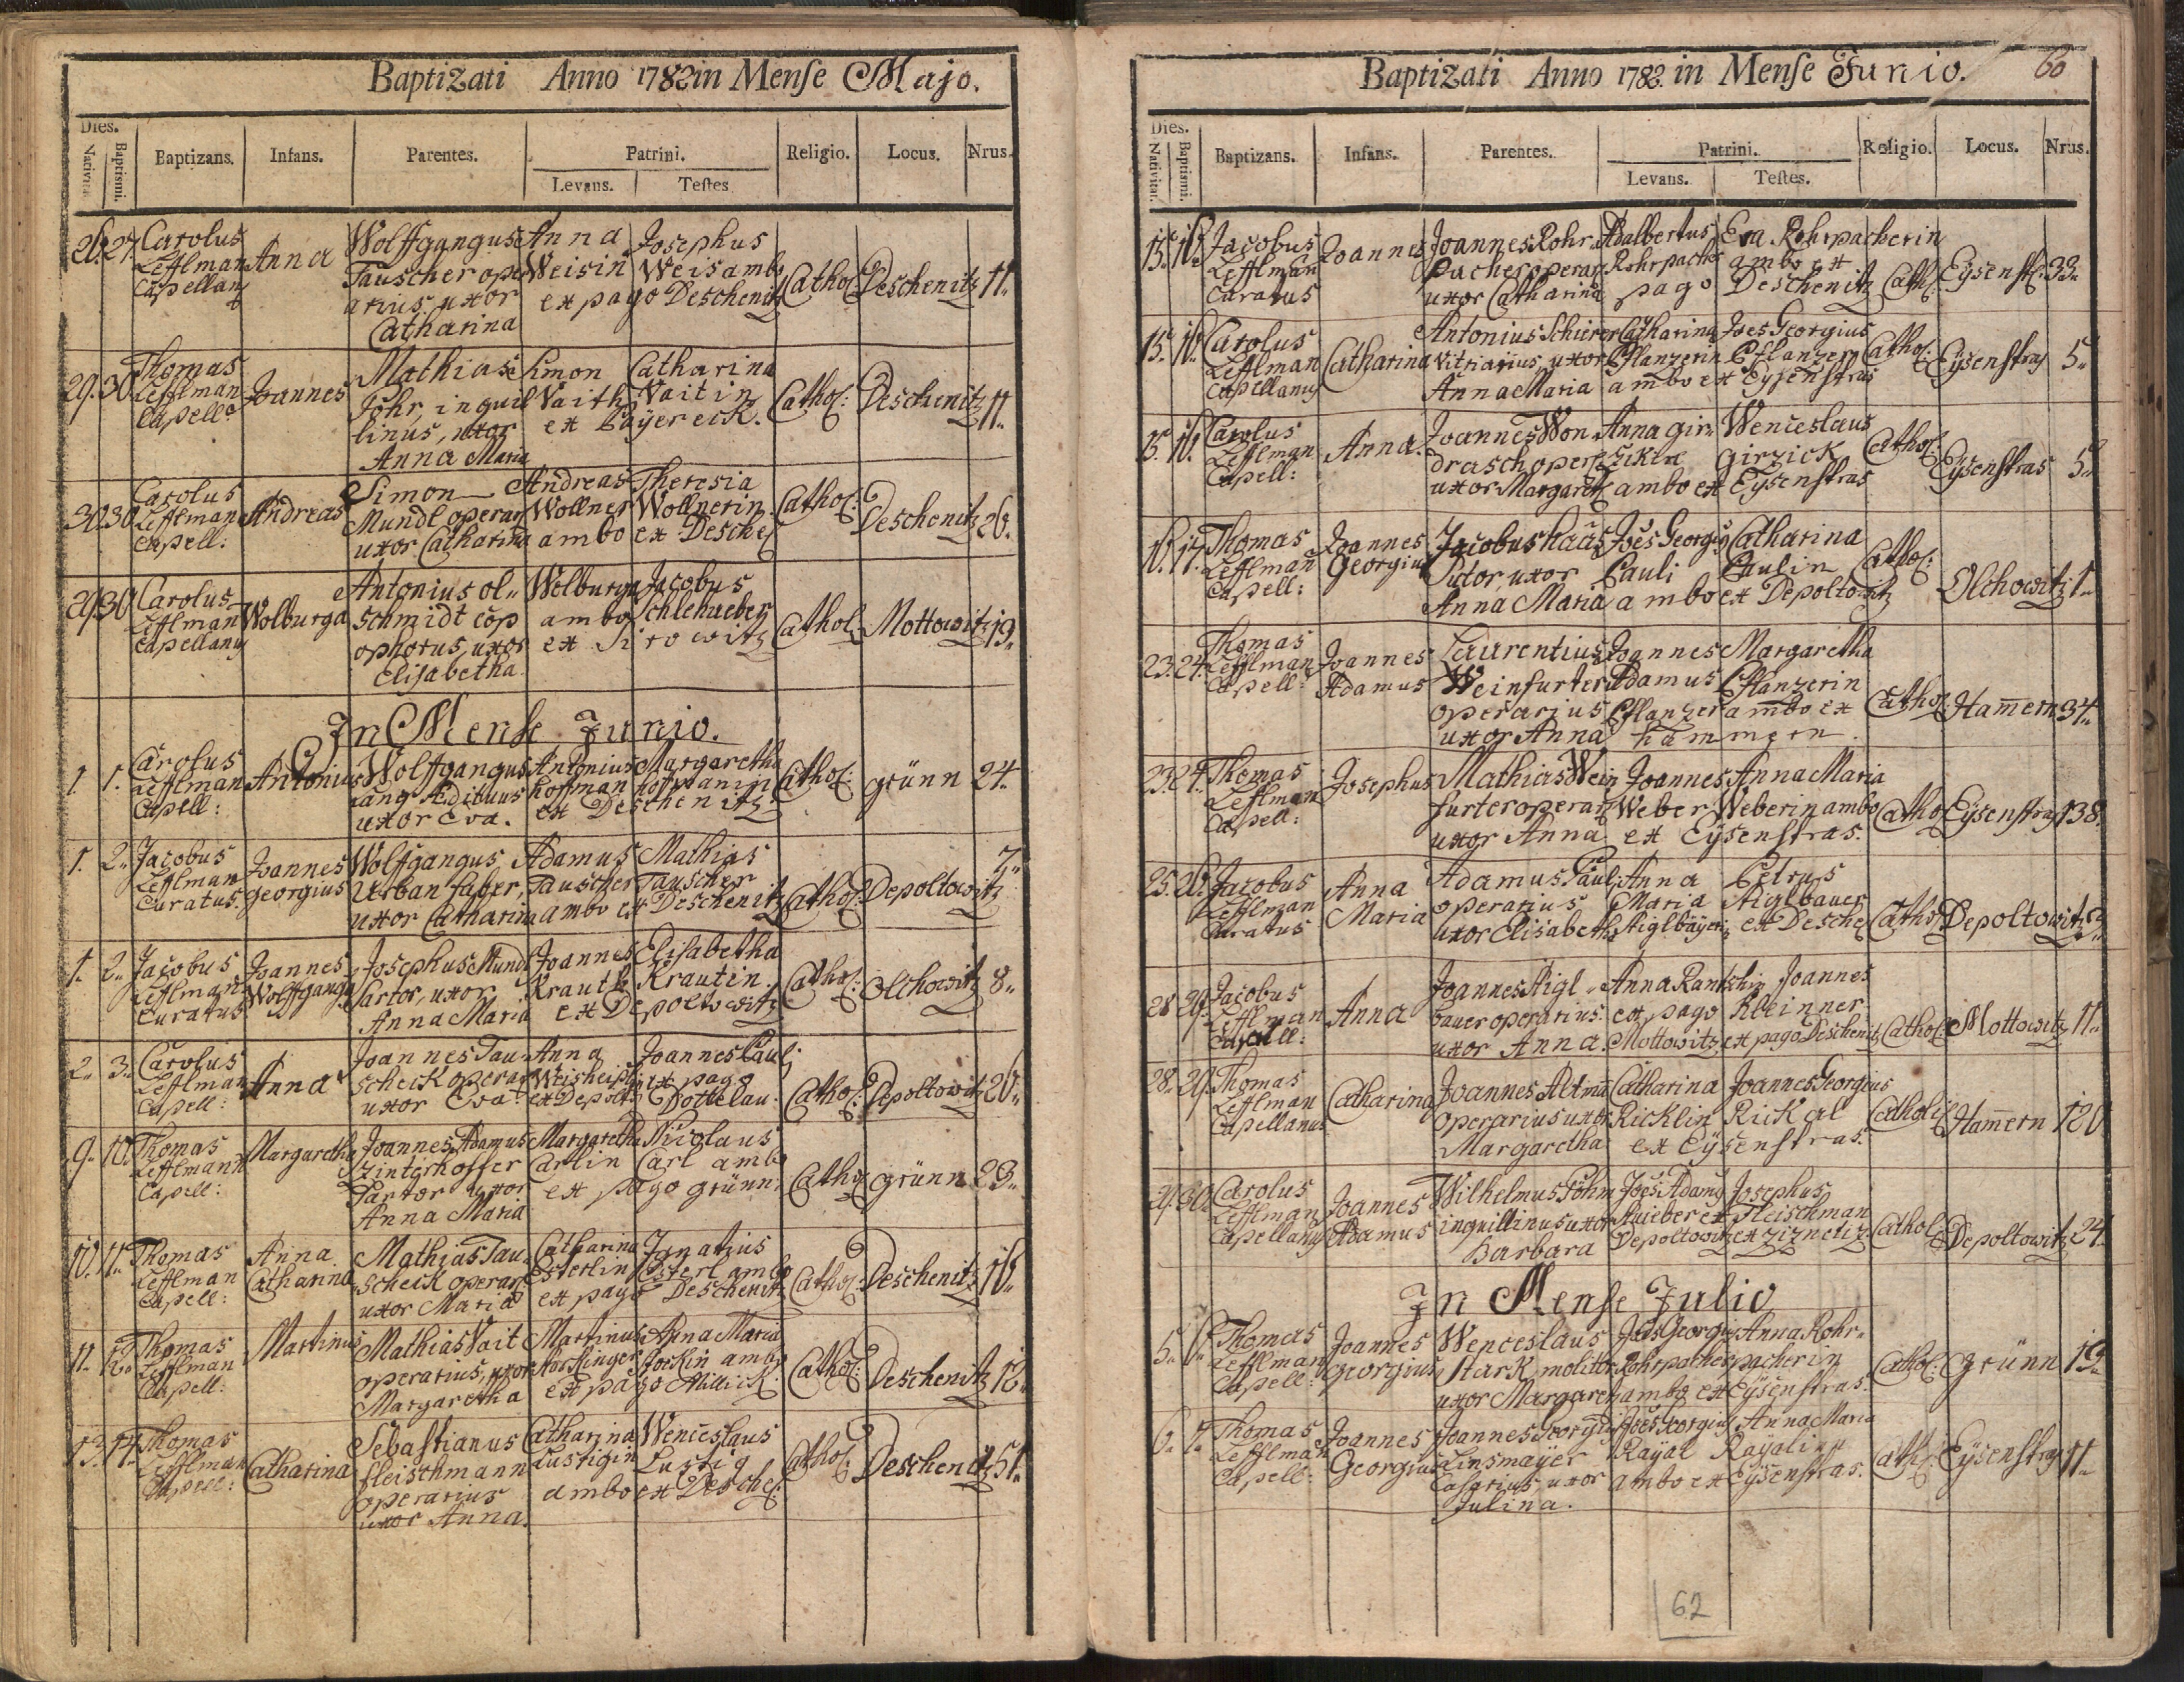 Baptizati Anno 1782 in Mense Majo.
Dies.
Nativit. Baptismi. Baptizans. Infans. Parentes. Patrini. Religio. Locus. Nrus.
Levans. Testes
26. 27. Carolus Wolffgangus Anna Josephus
Lefflman Anna Tauscher oper Weisin Weis ambo Cathol Deschenitz 11.
Capellan arius, uxor ex pago Deschenitz
Catharina
29. 30. Thomas Mathias Simon Catharina
Lefflman Joannes Fohr, inquil Vaith Vaitin Cathol: Deschenitz 11.
Capell: linus, uxor ex Bayereck.
Anna Maria
30. 30. Carolus Simon Andreas Theresia
Lefflman Andreas Mundl operar Wollner Wollnerin Cathol: Deschenitz 26.
Capell: uxor Catharina ambo ex Desche
29. 30. Carolus Antonius ol- Wolburga Jacobus
Lefflman Wolburga schmidt cop ambo Schlehueber Cathol: Mottowitz 19.
Capellany ophorus, uxor ex
Elisabetha
In Mense Junio.
1. 1. Carolus Antonius Wolffgangus Antonius Margaretha
Lefflman Lang Ædituus hoffman hoffmanin Cathol: grünn 24.
Capell: uxor Eva. ex Deschenitz
1. 2. Jacobus Joannes Wolffgangus Adamus Mathias 7.
Lefflman georgius Urban faber, Tauscher Tauscher
Curatus. uxor Catharina ambo ex Deschenitz Cathol: Depoltowitz
1. 2. Jacobus Joannes Josephus Mundl Joannes Elisabetha
Lefflman Wolffgang Sartor, uxor Krauth Krautin. Cathol: Olchowitz 8.
Curatus Anna Maria ex Depoltowitz
2. 3. Carolus Joannes Tau- Anna Joannes Paul
Lefflman Anna scheik operar ex pago Cathol: Depoltowitz 20.
Capell: uxor Eva ex Depolt Dottelau.
9. 10. Thomas Margaretha Joannes Adamus Margaretha Nicolaus
Lefflmann Zinterhoffer Carlin Carl ambo
Capell: Sartor uxor ex pago grünn. Cathol grünn 23.
Anna Maria
10. 11. Thomas Anna Mathias Tau- Catharina Ignatius
Lefflman Catharina scheik operar Esterlin Esterl ambo Cathol: Deschenitz 16.
Capell: uxor Maria ex pago Deschenitz
11. 12. Thomas Martinus Mathias Vait Martinus Anna Maria
Lefflman operarius, uxor Cathol: Deschenitz 12.
Capell: Margaretha ex pago Millick.
13. 14. Thomas Sebastianus Catharina Wenceslaus
Lefflman Catharina fleischmann Lustigin Lustig Cathol: Deschenitz 51.
Capell: operarius ambo ex Desche:
uxor Anna.
Baptizati Anno 1782. in Mense Junio. 60
Dies.
Nativitat. Baptismi. Baptizans. Infans. Parentes. Patrini. Religio. Locus. Nrus.
Levans. Testes.
15. 16. Jacobus Joannes Joannes Rohr- Adalbertus Eva Rohrpacherin
Lefflman pacher operar Rohrpacher ambo ex Cath: Eysenstr. 33.
Curatus uxor Catharina pago Deschenitz
15. 16. Carolus Antonius Schierer Catharina Joes Georgius
Lefflman Catharina vitriarius, uxor Pflanzerin Pflanzer Cathol: Eysenstras 5.
Capellanus Anna Maria ambo ex Eysenstras
15. 16. Carolus Joannes Won- Anna gir- Wenceslaus
Lefflman Anna. drasch oper zikin girzick Cathol: Eysenstras 5.
Capell: uxor Margareth ambo ex Eysenstras
16. 17. Thomas Joannes Jacobus haas Joes Georgy Catharina
Lefflman Georgius Sutor, uxor Pauli Paulin Cathol: Olchowitz 1.
Capell: Anna Maria ambo ex Depoltowitz
23. 24. Thomas Joannes Laurentius Joannes Margaretha
Lefflman Adamus Weinfurter Adamus Pflanzerin
Capell: operarius Pflanzer ambo ex Cathol: Hamern 34.
uxor Anna hammern.
23. 24. Thomas Josephus Mathias Wein Joannes Anna Maria
Lefflman furter operar Weber Weberin ambo Cathol: Eysenstras 138.
Capell: uxor Anna ex Eysenstras.
25. 26. Jacobus Anna Adamus Paul Anna Petrus
Lefflman Maria operarius Maria Aiglbauer
Curatus uxor Elisabetha Aiglbayer ex Desche Cathol: Depoltowitz
28. 29. Jacobus Joannes Aigl- Anna Joannes
Lefflman Anna bauer operarius. ex pago Kleinner
Capell: uxor Anna. Mottowitz ex pago Deschenitz Cathol: Mottowitz 11.
28. 29. Thomas Joannes Altman Catharina Joannes Georgius
Lefflman Catharina operarius uxor Ricklin Rickal Catholi Hamern 120
Capellanus Margaretha ex Eysenstras.
29. 30. Carolus Joannes Wilhelmus Böhm Joes Adam Josephus
Lefflman Adamus inquillinus uxor ex Fleischman
Capellany Barbara Depoltowitz ex Cathol: Depoltowitz 24.
In Mense Julio
5. 6. Thomas Joannes Wenceslaus Joes Georgius Anna Rohr-
Lefflman georgius Stark, molitor Rohrpacher pacherin Cathol: grünn 19.
Capell: uxor Margareth ambo ex Eysenstras.
6. 7. Thomas Joannes Joannes Georgius Joes Georgius Anna Maria
Lefflman Georgius Linsmayer Rayal Rayalin Cath: Eysenstras 11.
Capell: Casarius, uxor ambo ex Eysenstras.
Julina.
62